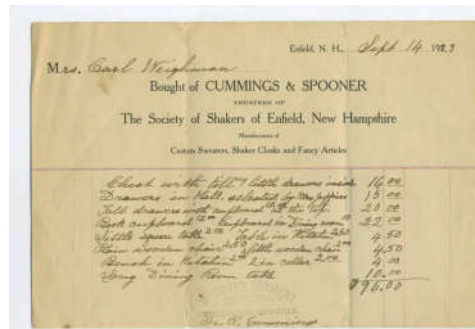 Enfield, N. H., Sept 14 1923
Mrs. Carl Weighman
Bought of CUMMINGS & SPOONER
TRUSTEES OF
The Society of Shakers of Enfield, New Hampshire
Manufacturers of
Custom Sweaters, Shaker Cloaks and Fancy Articles
Chest with 7 little drawers inside 16.00
Drawers in Hall, selected by Mrs. 15.00
Tall drawers with cupboard at the top 20.00
Book cupboard 12.00 Cupboard in Dining room 10 22.00
Little square table 2.00 Table in 2.50 4.50
Plain wooden chair 2.50 little wooden chair 2.00 4.50
Bench in 2.00 2 in celler 2.00 4.00
Long Dining Room table 10.00
$96.00
Cummings